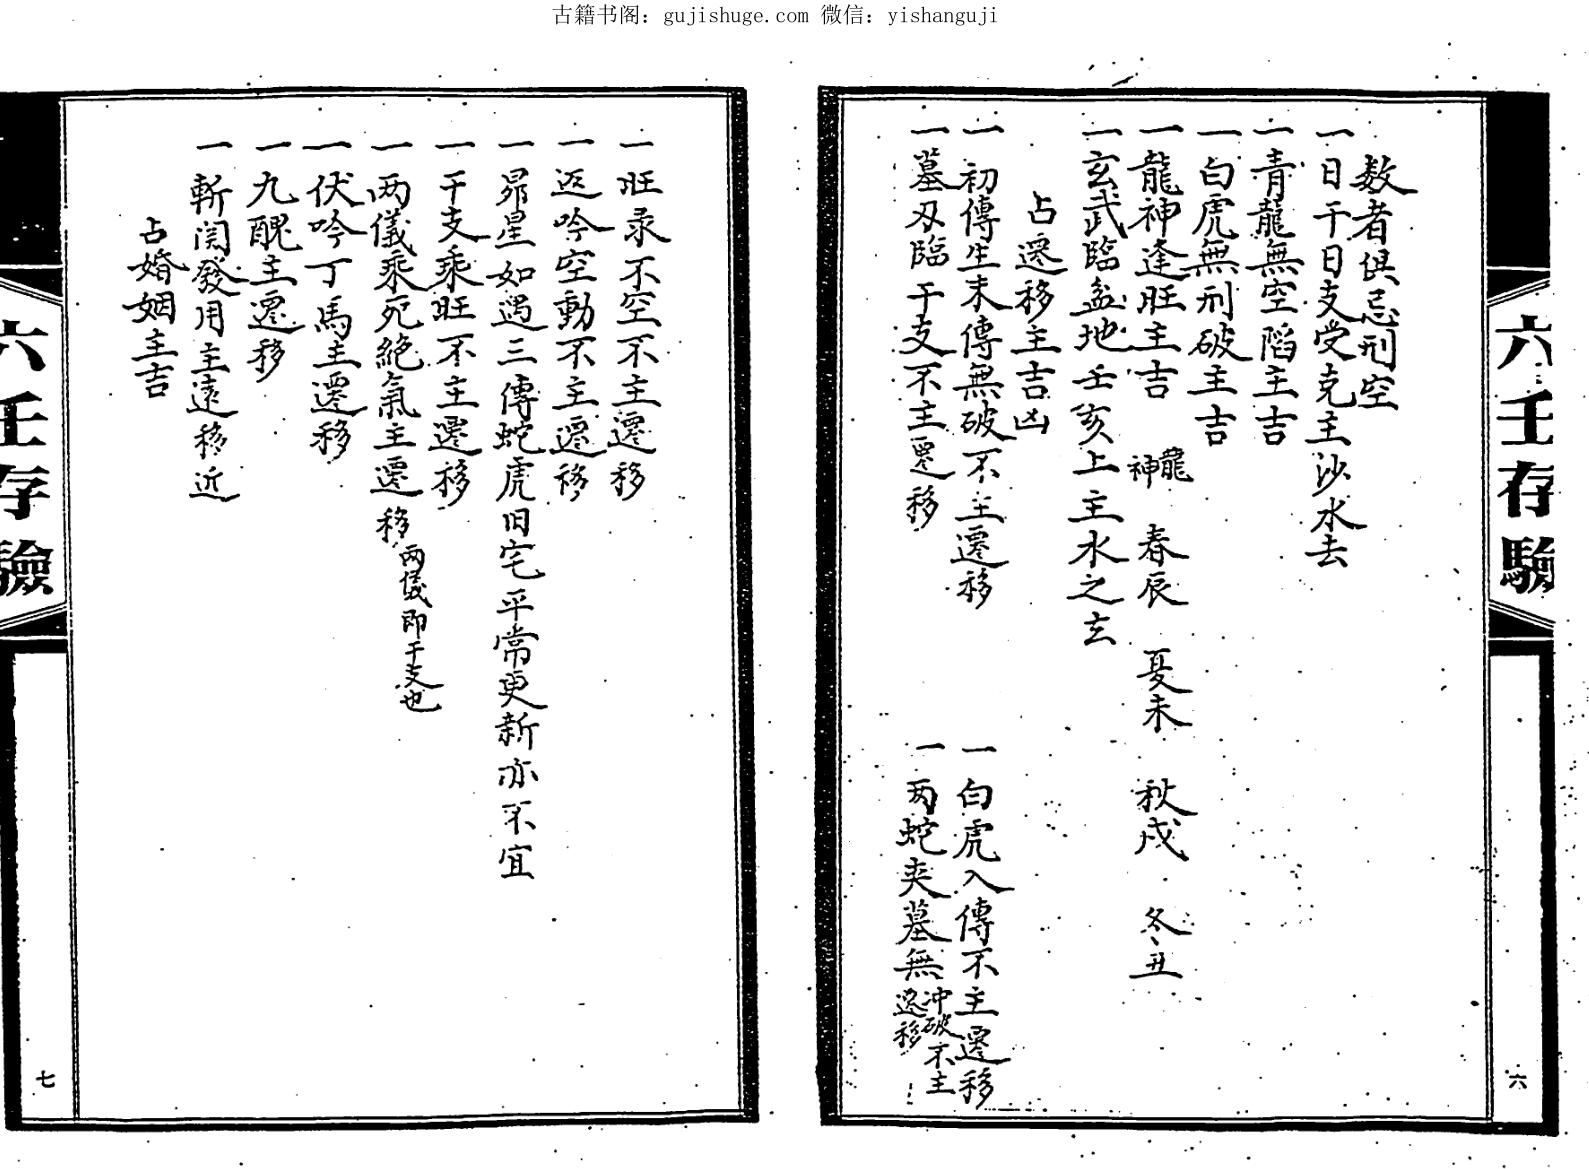 古籍书阁：gujishuge.com 微信：yishanguji
六壬存驗
六
数者俱忌刑空
一日干日支受克主沙水去
一青龍無空陷主吉
一白虎無刑破主吉
一龍神逢旺主吉 龍神 春辰 夏未 秋戌 冬丑
一玄武臨盆地壬亥上主水之玄
占遷移主吉凶
一初傳生末傳無破不主遷移
一白虎入傳不主遷移
一墓刃臨干支不主遷移
一两蛇夹墓無冲破不主遷移
一旺录不空不主遷移
一返吟空動不主遷移
一昴星如遇三傳蛇虎旧宅平常更新亦不宜
一干支乘旺不主遷移
一两儀乘死絕氣主遷移 两儀即干支也
一伏吟丁馬主遷移
一九醜主遷移
一斬関發用主遠移近
占婚姻主吉
六壬存驗
七